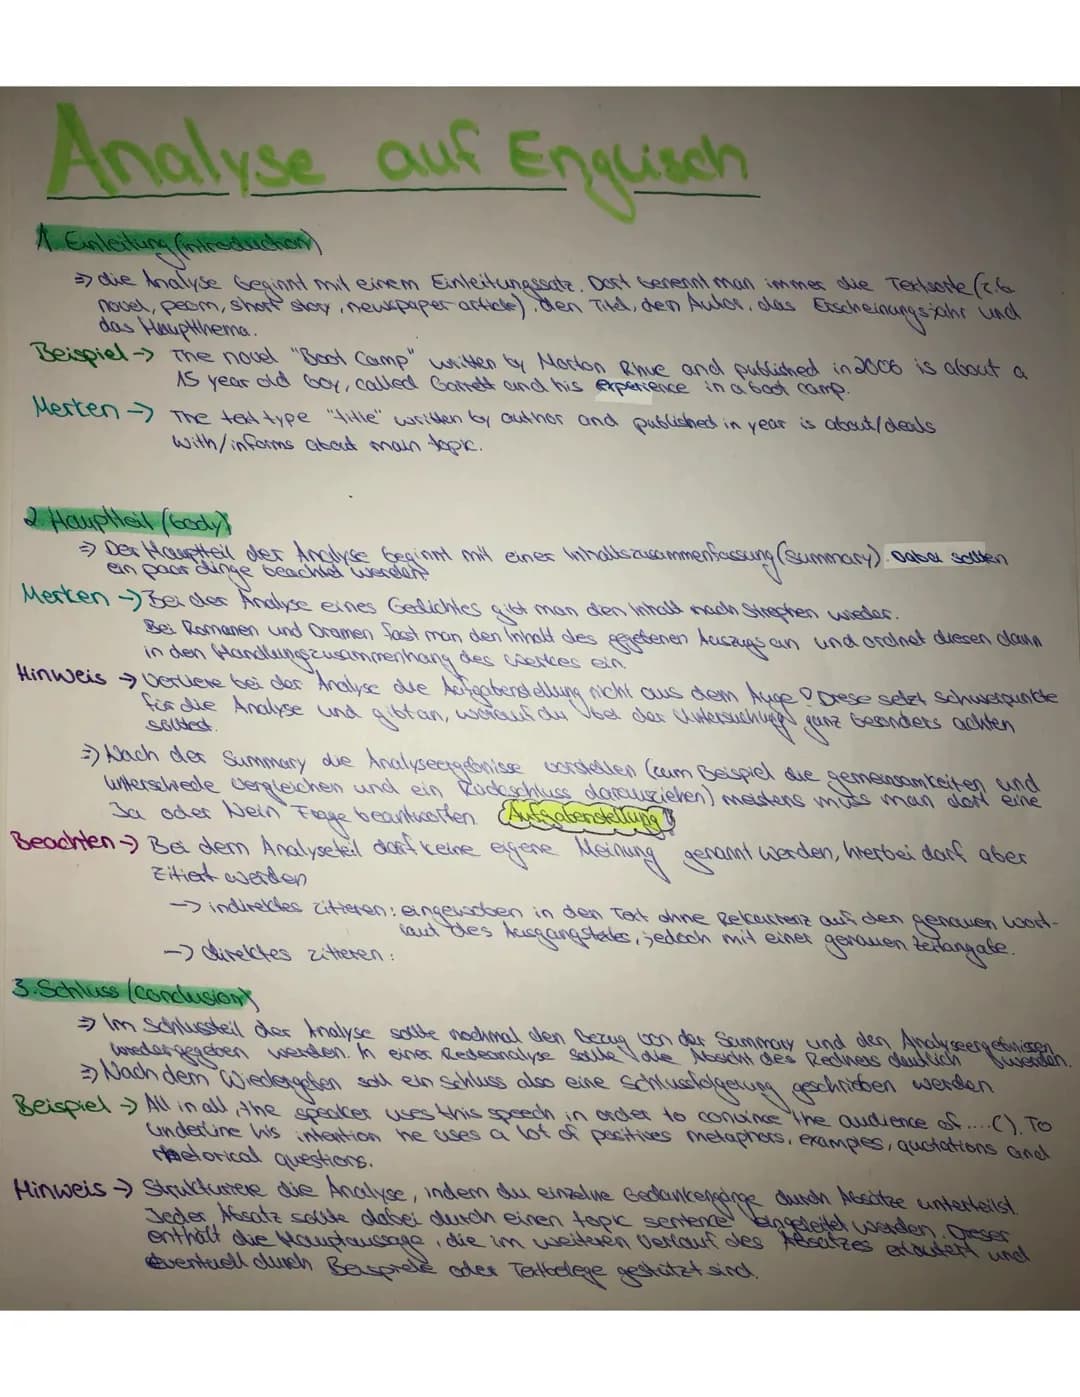 Analyse auf Englisch
1. Einleitung (introduction)
⇒ die Analyse beginnt mit einem Einleitungssatz. Dort benennt man immer die Textsorte (z.b
novel, peom, short story, newspaper article), den Titel, den Autor, das Erscheinungsjahr und
das Hauptthema.
Beispiel → The novel "Boot Camp" written by Morton Rhue and published in 2006 is about a
15 year old boy, called Garrett and his experience in a boot camp.
Merken → The text type "title" written by author and published in year is about/deals
with/informs about main topic.
2. Hauptteil (body)
⇒ Der Hauptteil der Analyse beginnt mit einer Inhaltszusammenfassung (summary). Dabei sollten
ein paar dinge beachtet werden:
Merken → Bei der Analyse eines Gedichtes gibt man den Inhalt nach Strophen wieder.
Bei Romanen und Dramen fasst man den Inhalt des gegebenen Auszugs an und ordnet diesen dann
in den Handlungszusammenhang des Werkes ein.
Hinweis → Verliere bei der Analyse die Aufgabenstellung nicht aus dem Auge! Diese setzt Schwerpunkte
für die Analyse und gibt an, worauf du bei der Untersuchung ganz besonders achten
solltest.
⇒ Nach der Summary die Analyseergebnisse vorstellen (zum Beispiel die gemeinsamkeiten und
unterschiede vergleichen und ein Rückschluss darausziehen) meistens muss man dort eine
Ja oder Nein Frage beantworten. Aufgabenstellung!
Beachten → Bei dem Analyseteil darf keine eigene Meinung genannt werden, hierbei darf aber
zitiert werden
→ indirektes zitieren: eingewoben in den Text ohne Rekurrenz auf den genauen Wort-
laut des Ausgangstextes, jedoch mit einer genauen Zeilangabe.
→ direktes zitieren:
3. Schluss (conclusion)
⇒ Im Schlussteil der Analyse sollte nochmal den Bezug von der Summary und den Analyseergebnissen
wiedergegeben werden. In einer Redeanalyse sollte die Absicht des Redners deutlich werden.
⇒ Nach dem Wiedergeben soll ein Schluss also eine Schlussfolgerung geschrieben werden.
Beispiel → All in all, the speaker uses this speech in order to convince the audience of ....(). To
underline his intention he uses a lot of positives metaphors, examples, quotations and
rhetorical questions.
Hinweis → Strukturiere die Analyse, indem du einzelne Gedankengänge durch Absätze unterteilst.
Jeder Absatz sollte dabei durch einen topic sentence eingeleitet werden. Dieser
enthält die Hauptaussage, die im weiteren Verlauf des Absatzes erläutert und
eventuell durch Beispiele oder Textbelege gestützt sind.